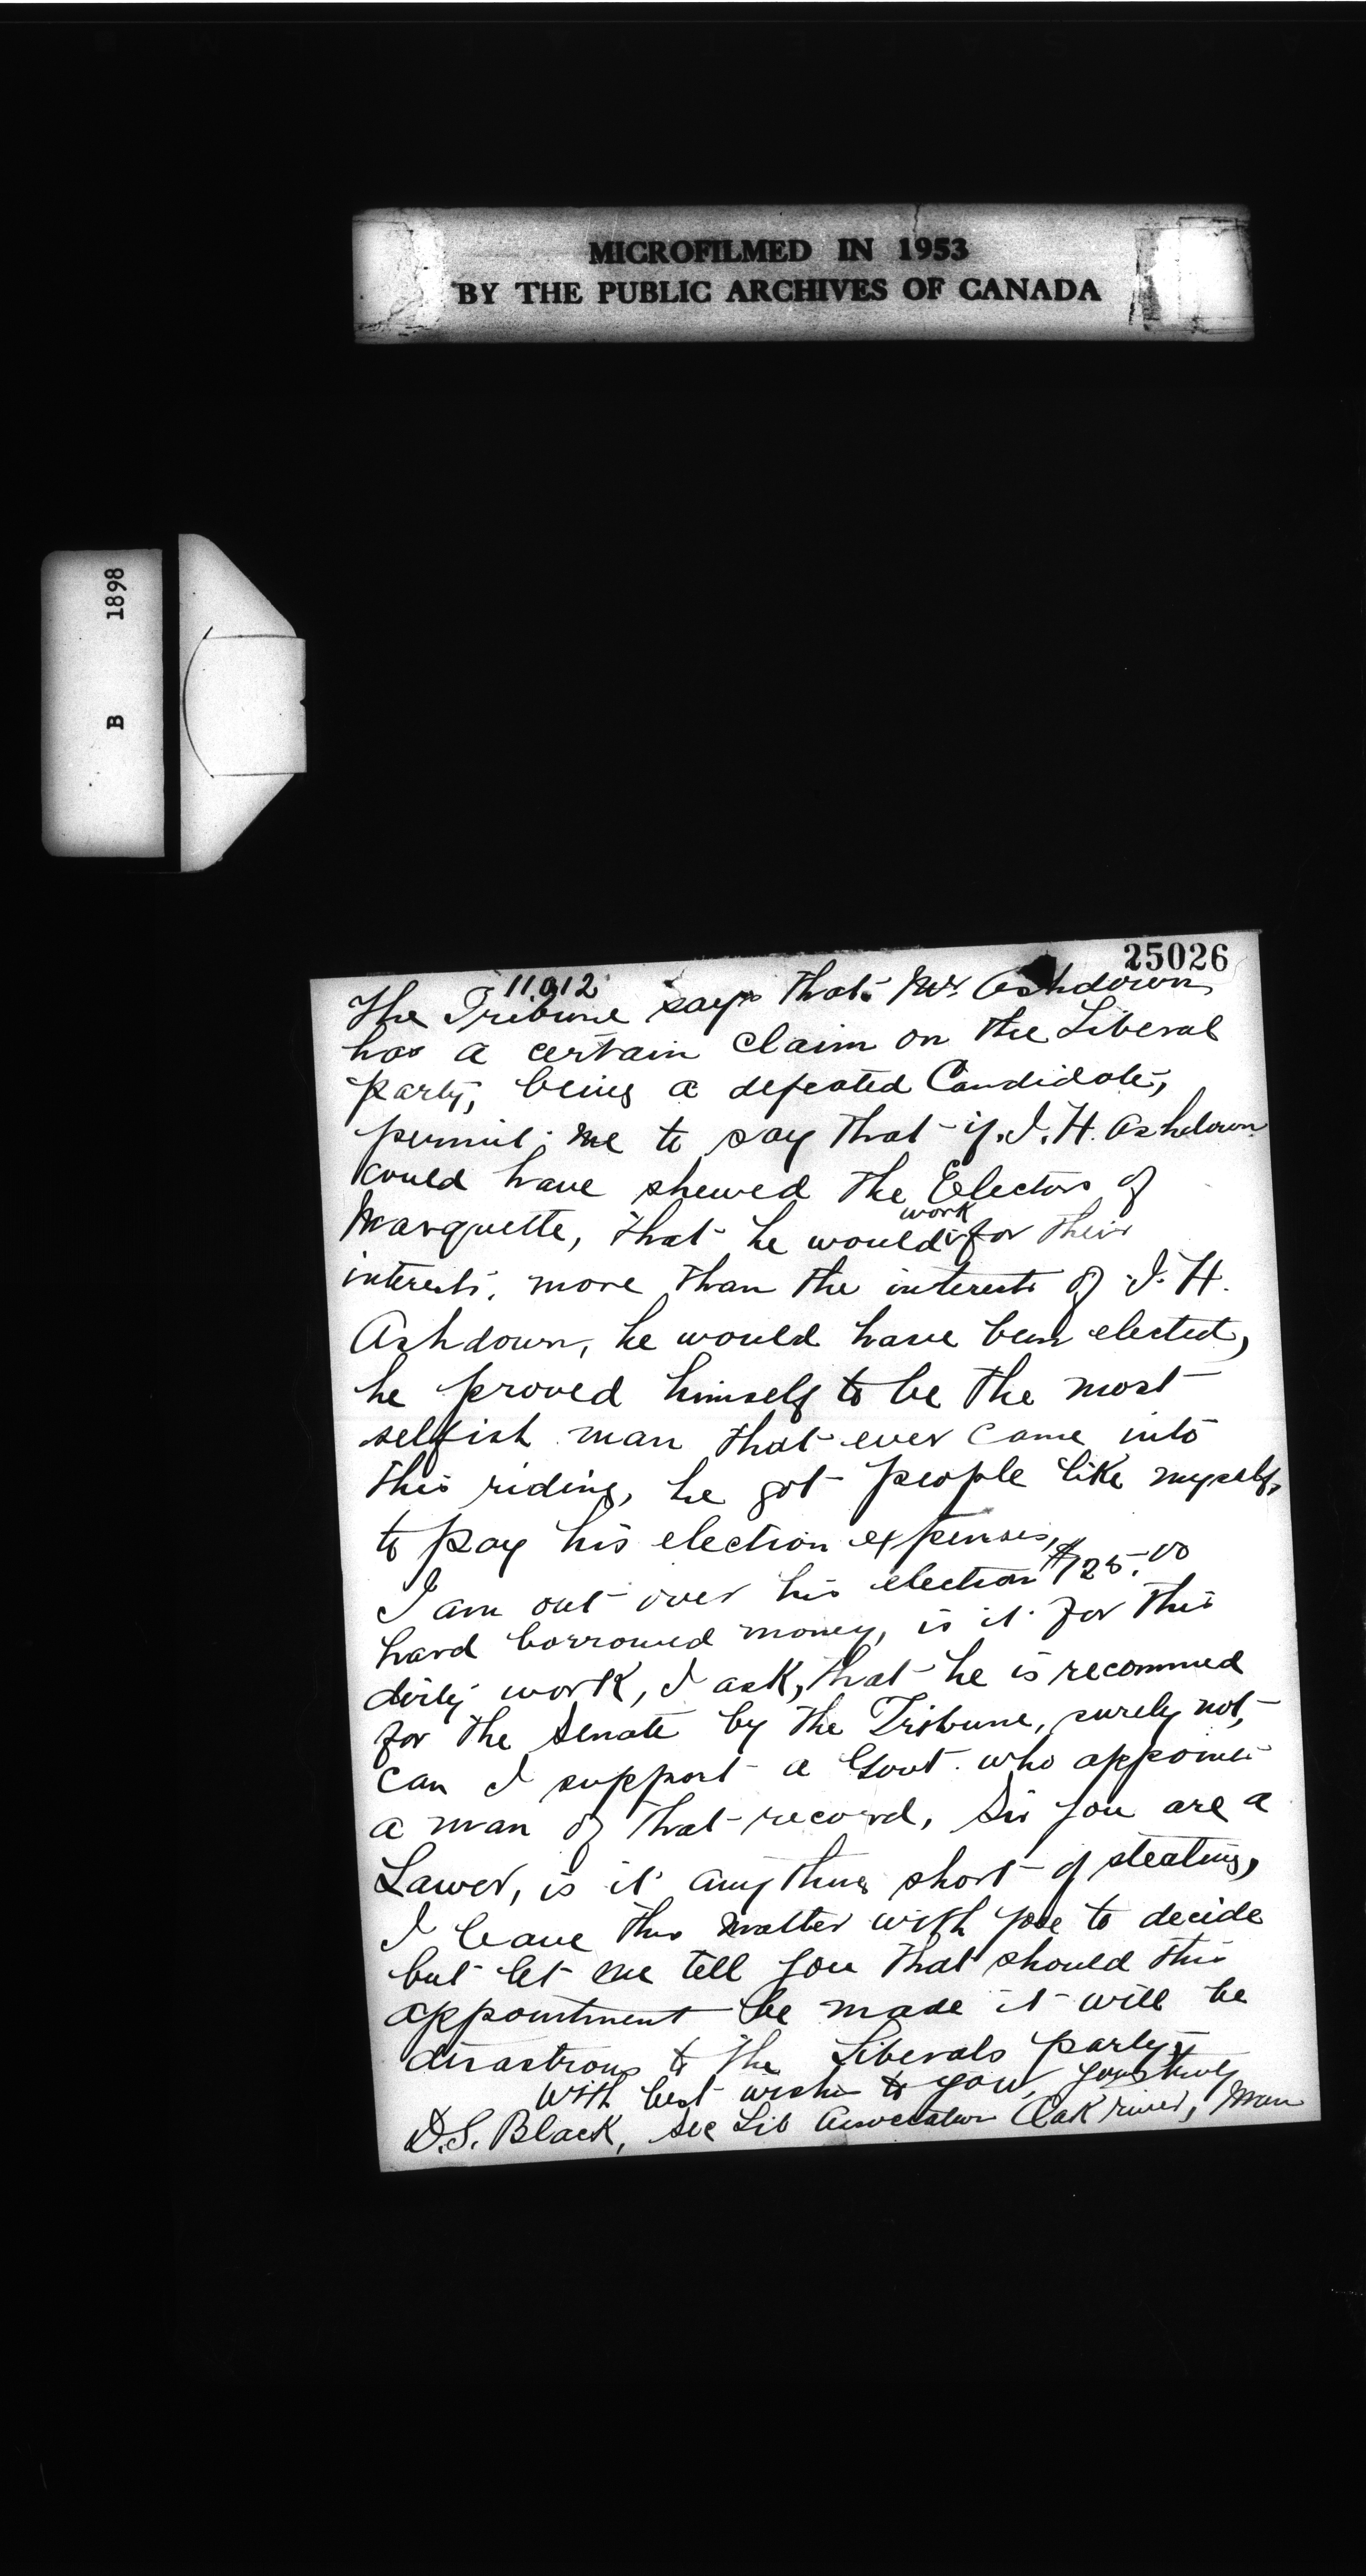 MICROFILMED IN 1953
BY THE PUBLIC ARCHIVES OF CANADA
B 1898
25026
11012
The Tribune says that Mr. Ashdown
has a certain claim on the Liberal
party, being a defeated Candidate,
permit me to say that if J. H. Ashdown
could have shewed the Electors of
Marquette, that he would work for their
interests, more than the interests of J. H.
Ashdown, he would have been elected,
he proved himself to be the most
selfish man that ever came into
this riding, he got people like myself,
to pay his election expenses,
I am out over his election $125.00
hard borrowed money, is it for this
dirty work, I ask, that he is recommed
for the Senate by the Tribune, surely not,
can I support a Govt. who appoints
a man of that record, Sir you are a
Lawer, is it any thing short of stealing,
I leave this matter with you to decide
but let me tell you that should this
appointment be made it will be
disastrous to the Liberals party,
with best wishes to you, yours truly
D.S. Black, Sec Lib Association Oak river, Man